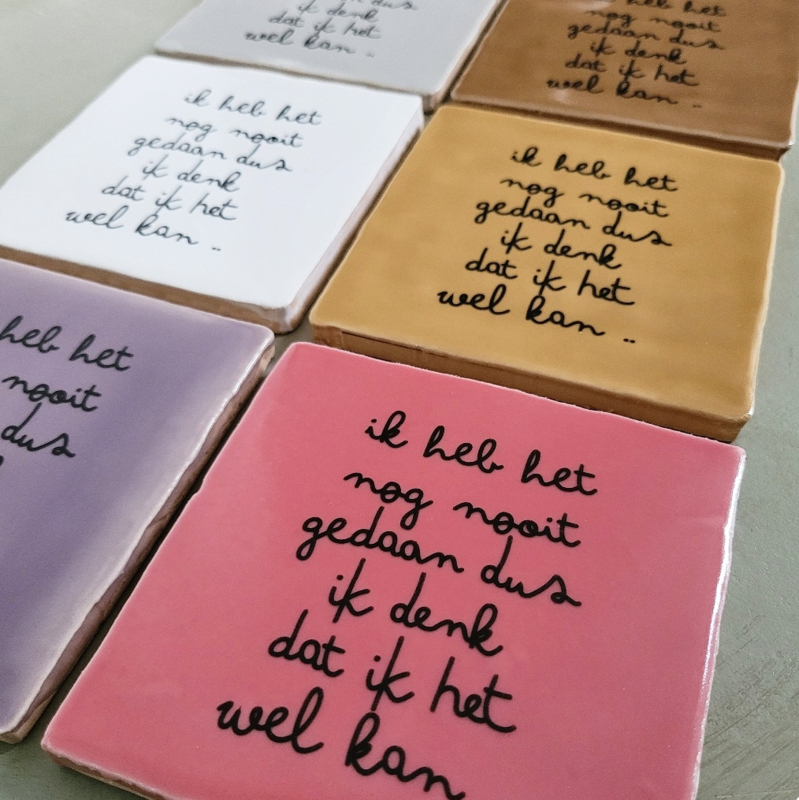 dat ik het
wel kan ..
ik heb het
nog nooit
gedaan dus
ik denk
dat ik het
wel kan ..
ik heb het
nog nooit
gedaan dus
ik denk
dat ik het
wel kan ..
ik heb het
nog nooit
gedaan dus
ik denk
dat ik het
wel kan ..
heb het
nooit
dus
ik heb het
nog nooit
gedaan dus
ik denk
dat ik het
wel kan